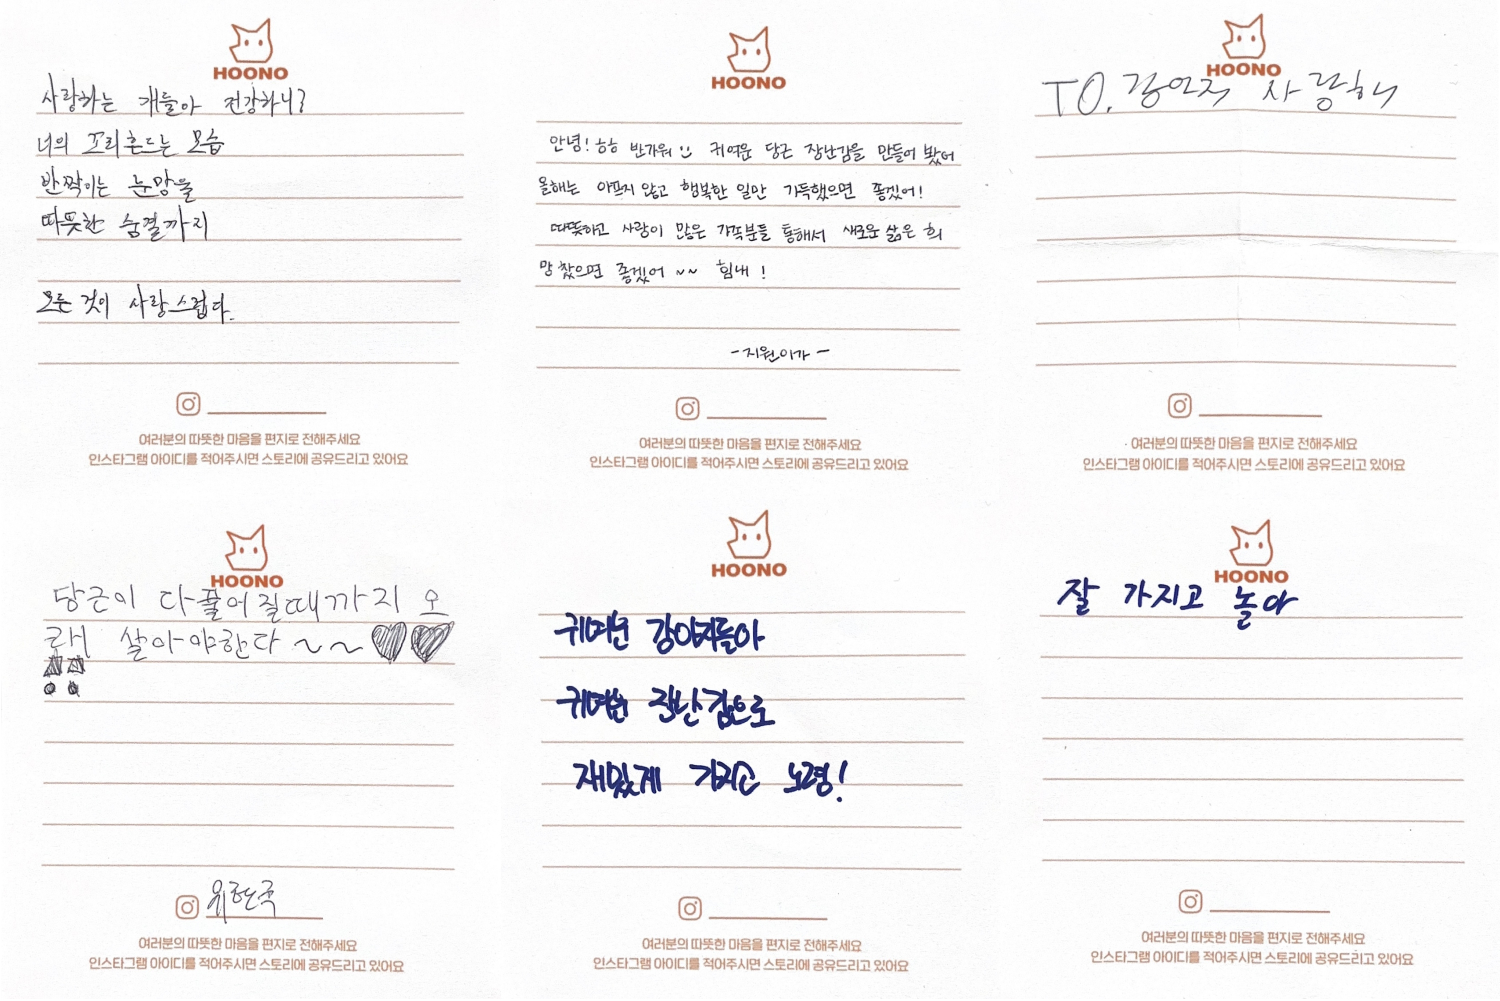 HOONO
사랑하는 개들아 건강하니?
너의 꼬리흔드는 모습
반짝이는 눈망울
따뜻한 숨결까지
모든 것이 사랑스럽다.
여러분의 따뜻한 마음을 편지로 전해주세요
인스타그램 아이디를 적어주시면 스토리에 공유드리고 있어요
HOONO
안녕! ㅎㅎ 반가워 귀여운 당근 장난감을 만들어 봤어
올해는 아프지 않고 행복한 일만 가득했으면 좋겠어!
따뜻하고 사랑이 많은 가족분들 통해서 새로운 삶은 희
망 찼으면 좋겠어 ~~ 힘내!
-지원이가-
여러분의 따뜻한 마음을 편지로 전해주세요
인스타그램 아이디를 적어주시면 스토리에 공유드리고 있어요
HOONO
TO. 사랑해
여러분의 따뜻한 마음을 편지로 전해주세요
인스타그램 아이디를 적어주시면 스토리에 공유드리고 있어요
HOONO
당근이 다풀어질때까지 오
래 살아야한다~~
여러분의 따뜻한 마음을 편지로 전해주세요
인스타그램 아이디를 적어주시면 스토리에 공유드리고 있어요
HOONO
귀여운 강아지들아
귀여운 장난감으로
재밌게 가지고 노렴!
여러분의 따뜻한 마음을 편지로 전해주세요
인스타그램 아이디를 적어주시면 스토리에 공유드리고 있어요
HOONO
잘 가지고 놀아
여러분의 따뜻한 마음을 편지로 전해주세요
인스타그램 아이디를 적어주시면 스토리에 공유드리고 있어요